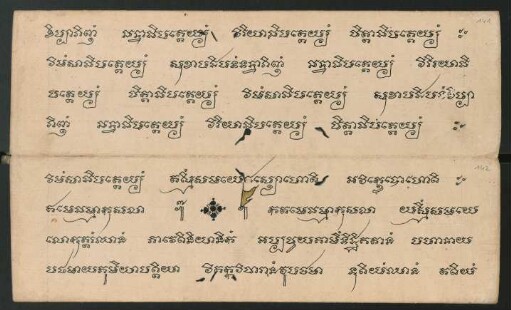 ខិប្បាភិញ្ញំ ឆន្ទាធិបតេយ្យំ វិរិយាធិបតេយ្យំ ចិត្តាធិបតេយ្យំ
វិមំសាធិបតេយ្យំ សុខាបដិបទំទន្ធាភិញ្ញំ ឆន្ទាធិបតេយ្យំ វិរិយាធិ
បតេយ្យំ ចិត្តាធិបតេយ្យំ វិមំសាធិបតេយ្យំ សុខាបដិបទំខិប្បា
ភិញ្ញំ ឆន្ទាធិបតេយ្យំ វិរិយាធិបតេយ្យំ ចិត្តាធិបតេយ្យំ
វិមំសាធិបតេយ្យំ តស្មិំសមយេផស្សោហោតិ អវិក្ខេបោហោតិ
ឥមេធម្មាកុសលា កតមេធម្មាកុសលា យស្មិំសមយេ
លោកុត្តរំឈានំ ភាវេតិនិយានិកំ អប្បចយគាមិំទិដ្ឋិគតានំ បហានាយ
បឋមាយភូមិយាបត្តិយា វិតក្កវិចារានំវូបសមា ទុតិយំឈានំ តតិយំ